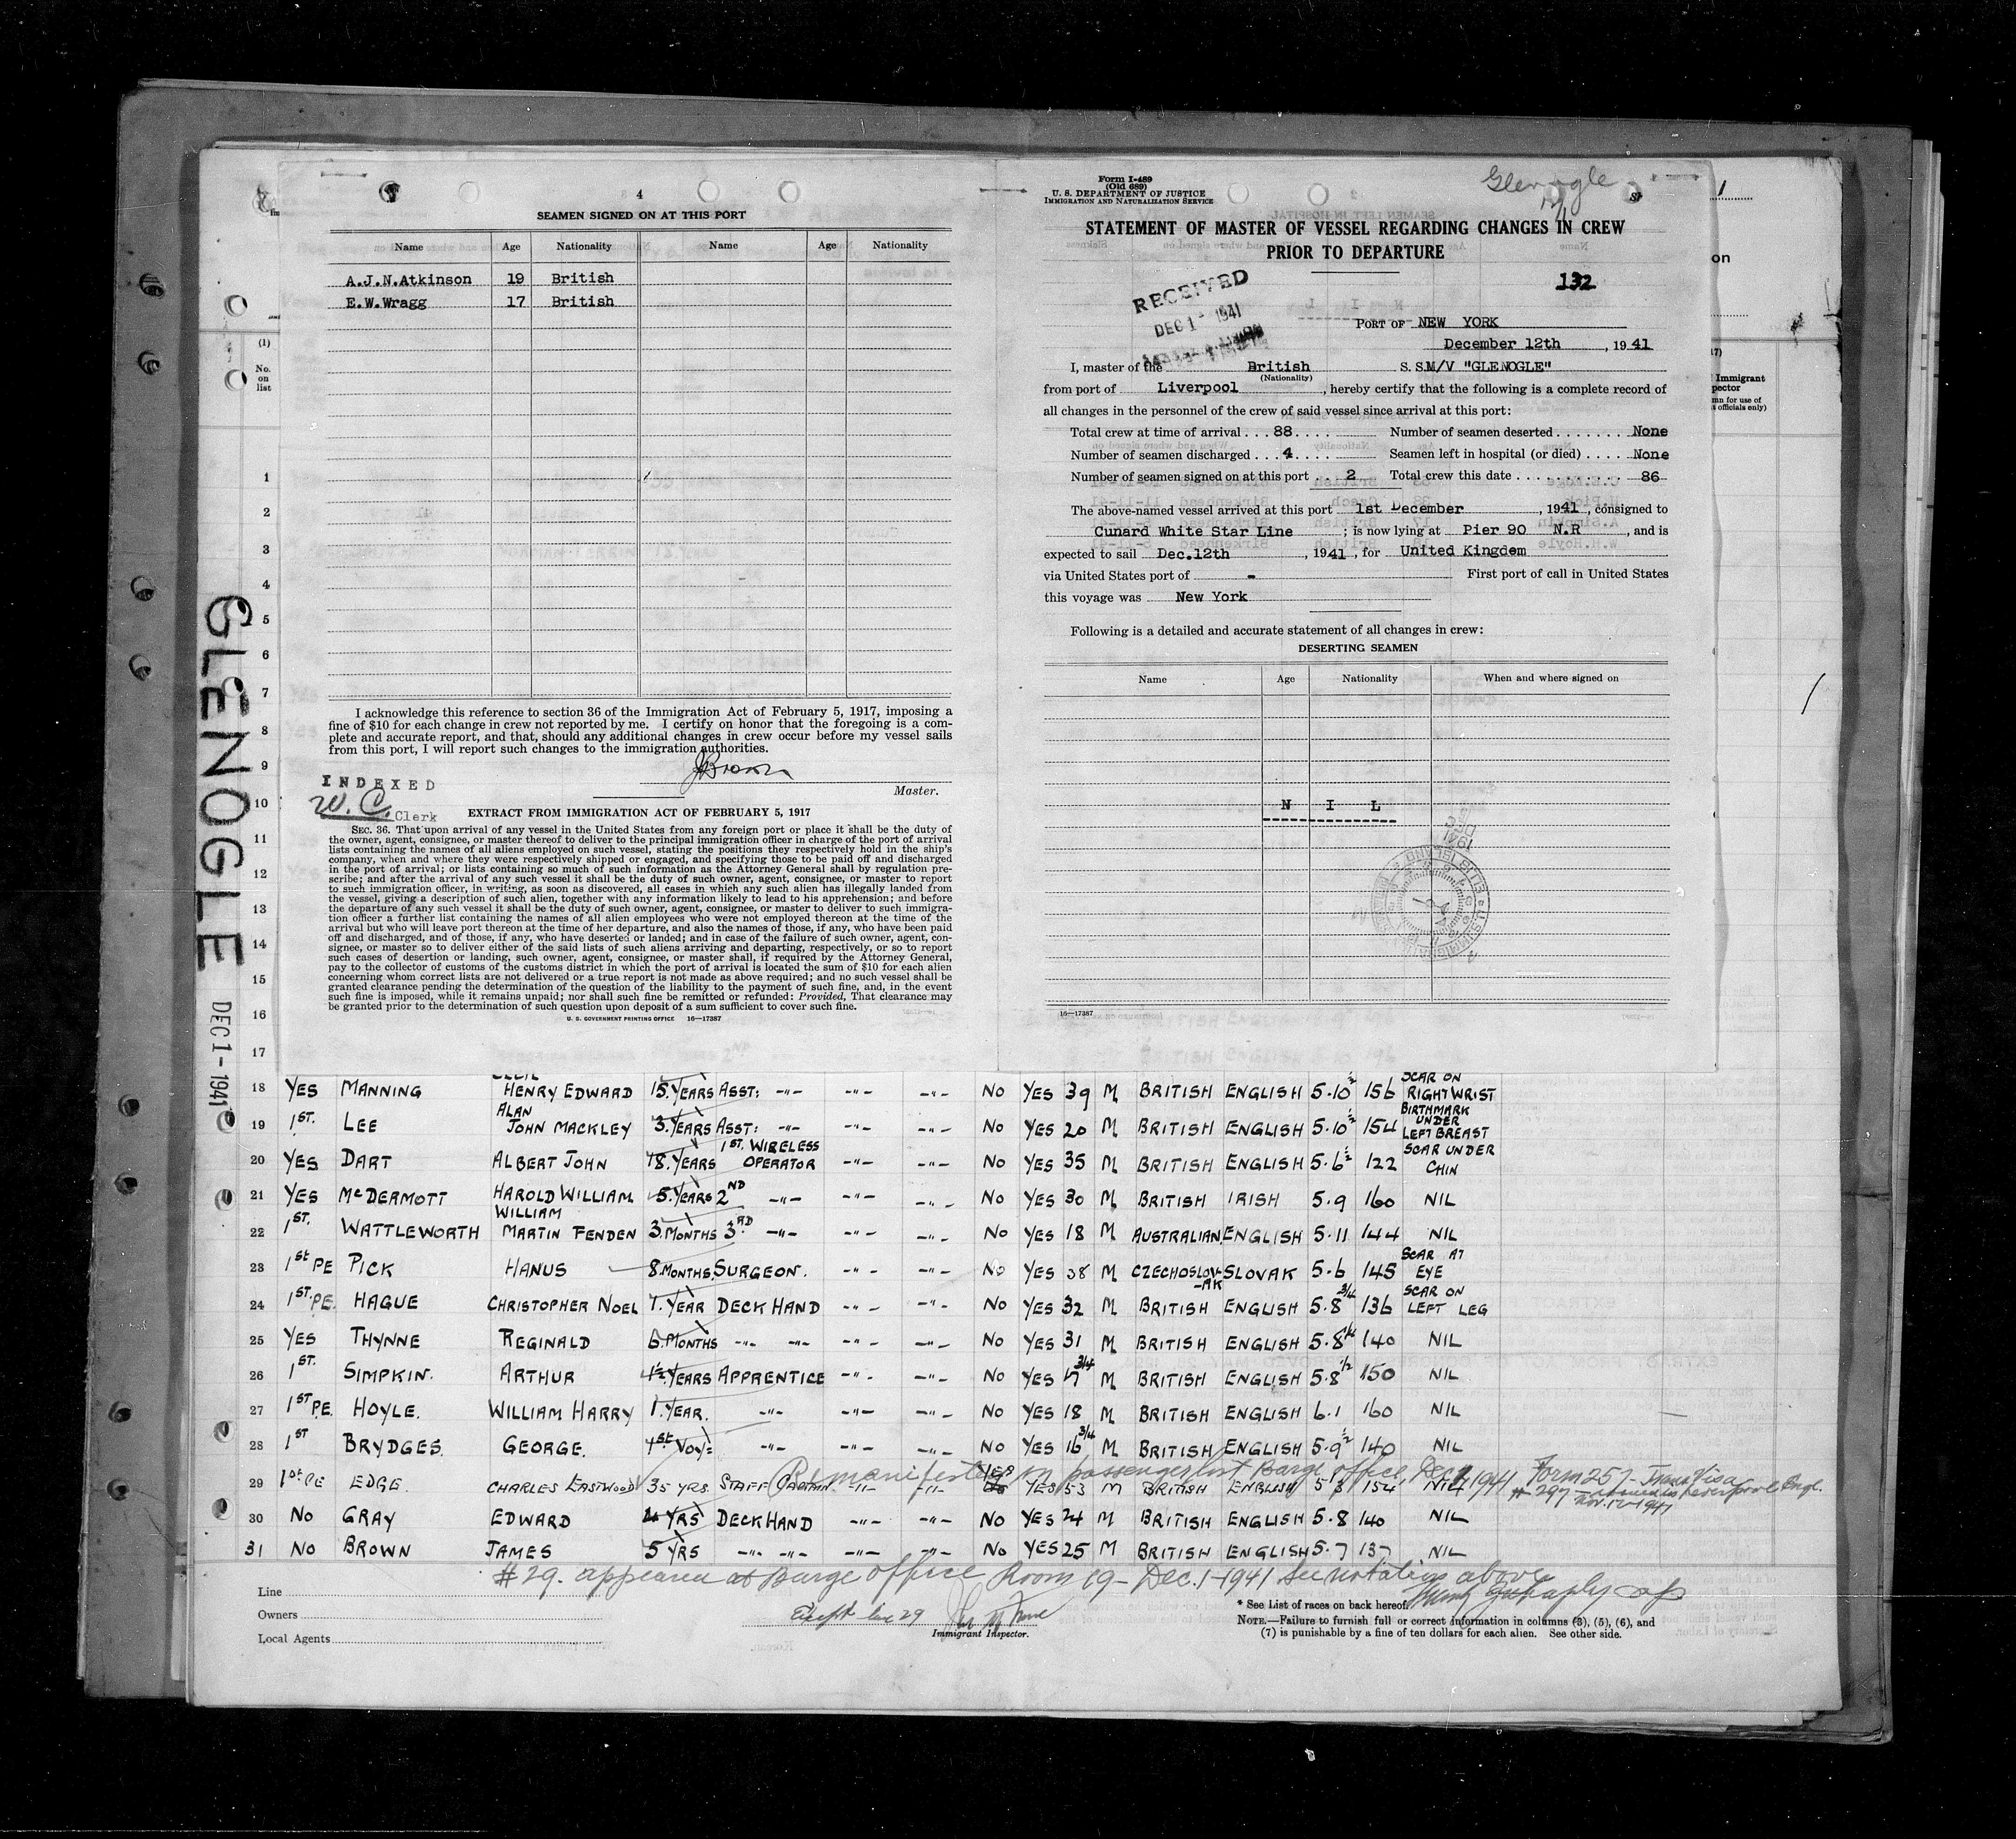 4
SEAMEN SIGNED ON AT THIS PORT
Name Age Nationality Name Age Nationality
A.J.N.Atkinson 19 British
E.W.Wragg 17 British
I acknowledge this reference to section 36 of the Immigration Act of February 5, 1917, imposing a
fine of $10 for each change in crew not reported by me. I certify on honor that the foregoing is a com-
plete and accurate report, and that, should any additional changes in crew occur before my vessel sails
from this port, I will report such changes to the immigration authorities.
JBrown
Master.
INDEXED
W. C. Clerk
EXTRACT FROM IMMIGRATION ACT OF FEBRUARY 5, 1917
SEC. 36. That upon arrival of any vessel in the United States from any foreign port or place it shall be the duty of
the owner, agent, consignee, or master thereof to deliver to the principal immigration officer in charge of the port of arrival
lists containing the names of all aliens employed on such vessel, stating the positions they respectively hold in the ship's
company, when and where they were respectively shipped or engaged, and specifying those to be paid off and discharged
in the port of arrival; or lists containing so much of such information as the Attorney General shall by regulation pre-
scribe; and after the arrival of any such vessel it shall be the duty of such owner, agent, consignee, or master to report
to such immigration officer, in writing, as soon as discovered, all cases in which any such alien has illegally landed from
the vessel, giving a description of such alien, together with any information likely to lead to his apprehension; and before
the departure of any such vessel it shall be the duty of such owner, agent, consignee, or master to deliver to such immigra-
tion officer a further list containing the names of all alien employees who were not employed thereon at the time of the
arrival but who will leave port thereon at the time of her departure, and also the names of those, if any, who have been paid
off and discharged, and of those, if any, who have deserted or landed; and in case of the failure of such owner, agent, con-
signee, or master so to deliver either of the said lists of such aliens arriving and departing, respectively, or so to report
such cases of desertion or landing, such owner, agent, consignee, or master shall, if required by the Attorney General,
pay to the collector of customs of the customs district in which the port of arrival is located the sum of $10 for each alien
concerning whom correct lists are not delivered or a true report is not made as above required; and no such vessel shall be
granted clearance pending the determination of the question of the liability to the payment of such fine, and, in the event
such fine is imposed, while it remains unpaid; nor shall such fine be remitted or refunded: Provided, That clearance may
be granted prior to the determination of such question upon deposit of a sum sufficient to cover such fine.
U. S. GOVERNMENT PRINTING OFFICE 16—17387
Form I-489
(Old 689)
U. S. DEPARTMENT OF JUSTICE
IMMIGRATION AND NATURALIZATION SERVICE
Glenogle
12/1
STATEMENT OF MASTER OF VESSEL REGARDING CHANGES IN CREW
PRIOR TO DEPARTURE
132
RECEIVED
DEC 1 - 1941
PORT OF NEW YORK
December 12th, 1941
I, master of the British S. S. M/V "GLENOGLE"
(Nationality)
from port of Liverpool, hereby certify that the following is a complete record of
all changes in the personnel of the crew of said vessel since arrival at this port:
Total crew at time of arrival ... 88.... Number of seamen deserted ....... None
Number of seamen discharged ... 4.... Seamen left in hospital (or died) .... None
Number of seamen signed on at this port .. 2 Total crew this date .......... 86
The above-named vessel arrived at this port 1st December, 1941, consigned to
Cunard White Star Line; is now lying at Pier 90 N.R, and is
expected to sail Dec.12th, 1941, for United Kingdom
via United States port of - First port of call in United States
this voyage was New York
Following is a detailed and accurate statement of all changes in crew:
DESERTING SEAMEN
Name Age Nationality When and where signed on
N I L
16—17387
on
Immigrant
(1)
No. on list
GLENOGLE
DEC 1 - 1941
1
2
3
4
5
6
7
8
9
10
11
12
13
14
15
16
17
18 YES MANNING HENRY EDWARD 15.YEARS ASST: -"- -"- -"- No YES 39 M BRITISH ENGLISH 5.10½ 156 SCAR ON RIGHT WRIST
19 1ST. LEE ALAN JOHN MACKLEY 3.YEARS ASST: -"- -"- -"- No YES 20 M BRITISH ENGLISH 5.10½ 154 BIRTHMARK UNDER LEFT BREAST
20 YES DART ALBERT JOHN 18.YEARS 1ST. WIRELESS OPERATOR -"- -"- No YES 35 M BRITISH ENGLISH 5.6½ 122 SCAR UNDER CHIN
21 YES McDERMOTT HAROLD WILLIAM 5.YEARS 2ND -"- -"- -"- No YES 30 M BRITISH IRISH 5.9 160 NIL
22 1ST. WATTLEWORTH WILLIAM MARTIN FENDEN 3.MONTHS 3RD -"- -"- -"- No YES 18 M AUSTRALIAN. ENGLISH 5.11 144 NIL
23 1st PE PICK HANUS 8.MONTHS. SURGEON. -"- -"- No YES 38 M CZECHOSLOV-AK SLOVAK 5.6 145 SCAR AT EYE
24 1ST.PE. HAGUE CHRISTOPHER NOEL 1.YEAR DECK HAND -"- -"- No YES 32 M BRITISH ENGLISH 5.8¾ 136 SCAR ON LEFT LEG
25 YES THYNNE REGINALD 6.MONTHS -"- -"- -"- -"- No YES 31 M BRITISH ENGLISH 5.8¼ 140 NIL
26 1ST. SIMPKIN. ARTHUR 1½.YEARS APPRENTICE -"- -"- No YES 17¾ M BRITISH ENGLISH 5.8½ 150 NIL
27 1ST P.E. HOYLE. WILLIAM HARRY 1.YEAR. -"- -"- -"- No YES 18 M BRITISH ENGLISH 6.1 160 NIL
28 1ST BRYDGES. GEORGE. 1st VOY= -"- -"- -"- No YES 16¾ M BRITISH ENGLISH 5.9½ 140 NIL
Remanifested on passenger list Barge office, Dec 1, 1941 Form 257 - Trans Visa
29 1st PE EDGE. CHARLES EASTWOOD 35 YRS. STAFF CAPTAIN. -"- -"- YES YES 53 M BRITISH ENGLISH 5 8 154 NIL
# 297 - Liverpool Engl. Nov. 12-1941
30 No GRAY EDWARD 4 YRS DECKHAND -"- -"- No YES 24 M BRITISH ENGLISH 5.8 140 NIL
31 No BROWN JAMES 5 YRS -"- -"- -"- -"- No YES 25 M BRITISH ENGLISH 5.7 137 NIL
# 29. appeared at Barge office Room 19 - Dec. 1-1941 See notation above
Line
Owners
Local Agents
Except line 29
Immigrant Inspector.
* See List of races on back hereof.
NOTE.—Failure to furnish full or correct information in columns (3), (5), (6), and
(7) is punishable by a fine of ten dollars for each alien. See other side.